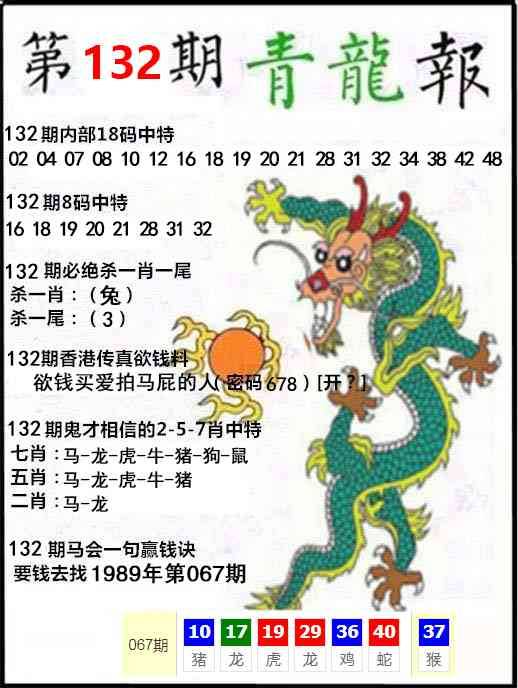 第132期青龍報
132期内部18码中特
02 04 07 08 10 12 16 18 19 20 21 28 31 32 34 38 42 48
132期8码中特
16 18 19 20 21 28 31 32
132期必绝杀一肖一尾
杀一肖：（兔）
杀一尾：（3）
132期香港传真欲钱料
欲钱买爱拍马屁的人(密码678）[开？]
132期鬼才相信的2-5-7肖中特
七肖：马-龙-虎-牛-猪-狗-鼠
五肖：马-龙-虎-牛-猪
二肖：马-龙
132期马会一句赢钱诀
要钱去找1989年第067期
067期 10 17 19 29 36 40 37
猪 龙 虎 龙 鸡 蛇 猴